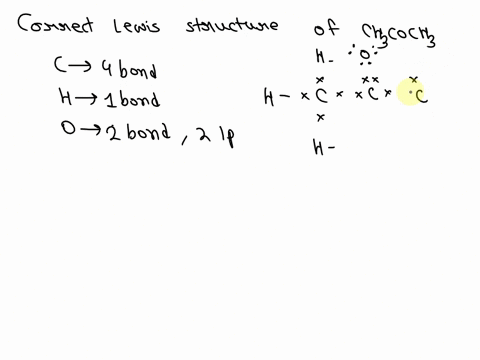 Correct Lewis structure of CH3COCH3
C → 4 bond
H → 1 bond
O → 2 bond, 2 lp
H - :O:
H - × C × × C × · C
H -